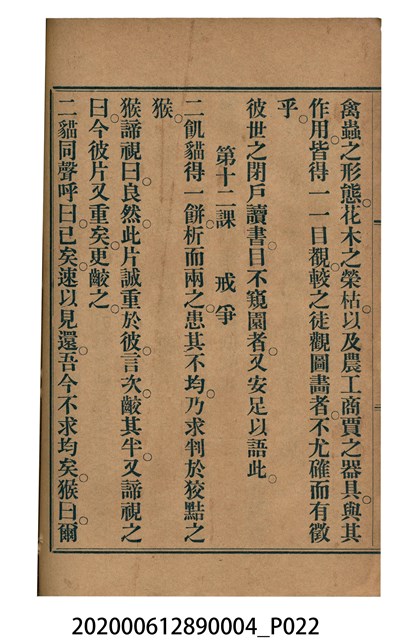 禽蟲之形態。花木之榮枯。以及農工商賈之器具。與其
作用。皆得一一目覩。較之徒觀圖畫者。不尤確而有徵
乎。
彼世之閉戶讀書。目不窺園者。又安足以語此。
第十二課　戒爭
二飢貓得一餅。析而兩之。患其不均。乃求判於狡黠之
猴。
猴諦視曰。良然。此片誠重於彼。言次。齩其半。又諦視之
曰。今彼片又重矣。更齩之。
二貓同聲呼曰。已矣。速以見還。吾今不求均矣。猴曰。爾
202000612890004_P022